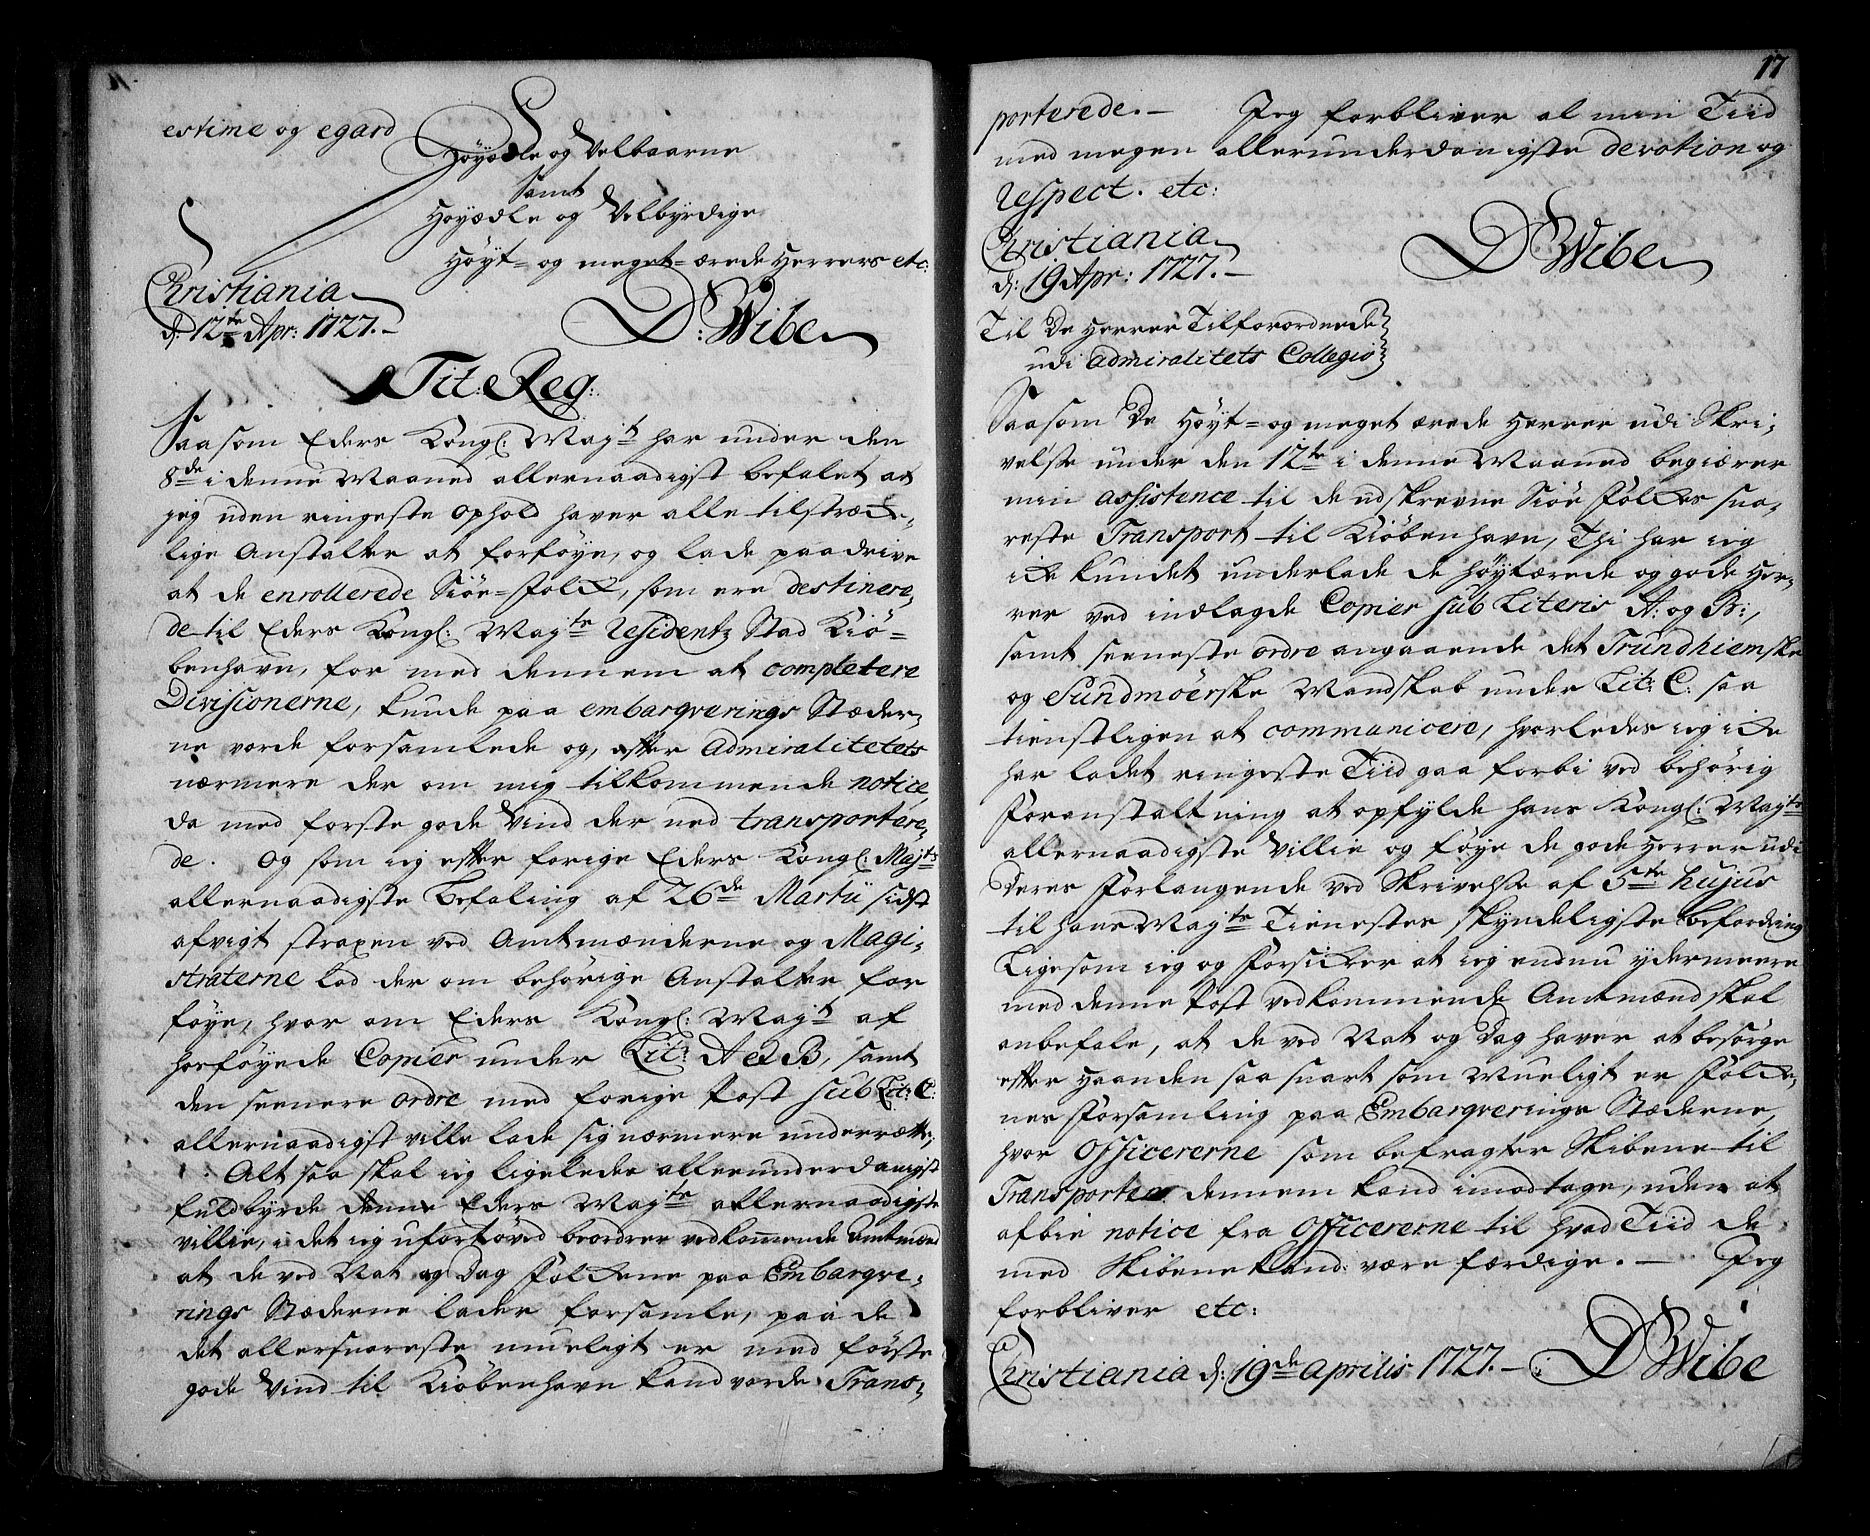 estime og egard
Høyædle og Velbaarne
Samt
Høyædle og Velbyrdige
Høyt- og meget-ærede Herrers etc:
Christiania
d: 12te Apr: 1727.-
D: Wibe
Tit: Reg:
Saasom Eders Kongl: Mayt har under den
8de i denne Maaned allernaadigst befalet at
jeg uden ringeste ophold haver alle tilstræcke-
lige Anstalter at forføye, og lade paadrive
at de enrollerede Siøe-Folck, som ere destinere-
de til Eders Kongl: Mayts Residentz Stad Kiø-
benhavn, for med dennem at completere
Divisionerne, kunde paa embarqverings Stæder-
ne vorde forsamlede og, efter Admiralitetets
nærmere der om mig tilkommende notice,
da med første gode Vind der ned transportere-
de. Og som ieg efter forige Eders Kongl: Majts
allernaadigste Befaling af 26de Martii sidst
afvigt straxen ved Amtmænderne og Magi-
straterne lod der om behörige Anstalter for
føye, hvor om Eders Kongl: Mayt af
hosføyede Copier under Lit: A & B, samt
den seenere ordre med forige Post sub Lit: C:
allernaadigst ville lade sig nærmere underrætte;
Alt saa skal ieg ligeledes allerunderdanigst
fuldbyrde denne Eders Mayts allernaadigste
villie, i det ieg ufortøved beordrer vedkommende Amtmænd
at de ved Nat og Dag Folckene paa Embarqve-
rings Stæderne lader forsamle, paa de
det allersnareste mueligt er med første
gode Vind til Kiøbenhavn kand vorde Trans-
17
porterede.- Jeg forbliver al min Tiid
med megen allerunderdanigste devotion og
respect. etc:
Christiania
d: 19 Apr: 1727.-
D Wibe
Til De Herrer Tilforordnede
udi Admiralitets Collegio
Saasom De Høyt- og meget ærede Herrer udi Skri-
velse under den 12te i denne Maaned begiærer
min assistence til de udskrevne Siøe Folckes sna-
reste Transport til Kiøbenhavn, Thi har ieg
icke kundet underlade de høytærede og gode Her-
rer ved indlagde Copier sub Literis A: og B:,
samt seeneste ordre angaaende det Trundhiemske
og Sundmöerske Mandskab under Lit: C: saa
tienstligen at communicere, hvorledes ieg icke
har ladet ringeste Tiid gaa forbi ved behörig
Foranstaltning at opfylde hans Kongl: Mayts
allernaadigste Villie og føye de gode Herrer udi
Deres Forlangende ved Skrivelse af 5te hujus
til hans Mayts Tienestes skyndeligste befordring
Ligesom ieg og Forsickrer at ieg endnu ydermeere
med denne Post vedkommende Amtmænd skal
anbefale, at de ved Nat og Dag haver at besørge
efter Haanden saa snart som Mueligt er Folcke-
nes Forsamling paa Embarqverings Stæderne,
hvor Officererne som befragter Skibene til
Transporten dennem kand imodtage, uden at
afbie notice fra Officererne til hvad Tiid de
med Skibene kand være færdige.- Jeg
forbliver etc:
Christiania d: 19de aprilis 1727.-
D Wibe